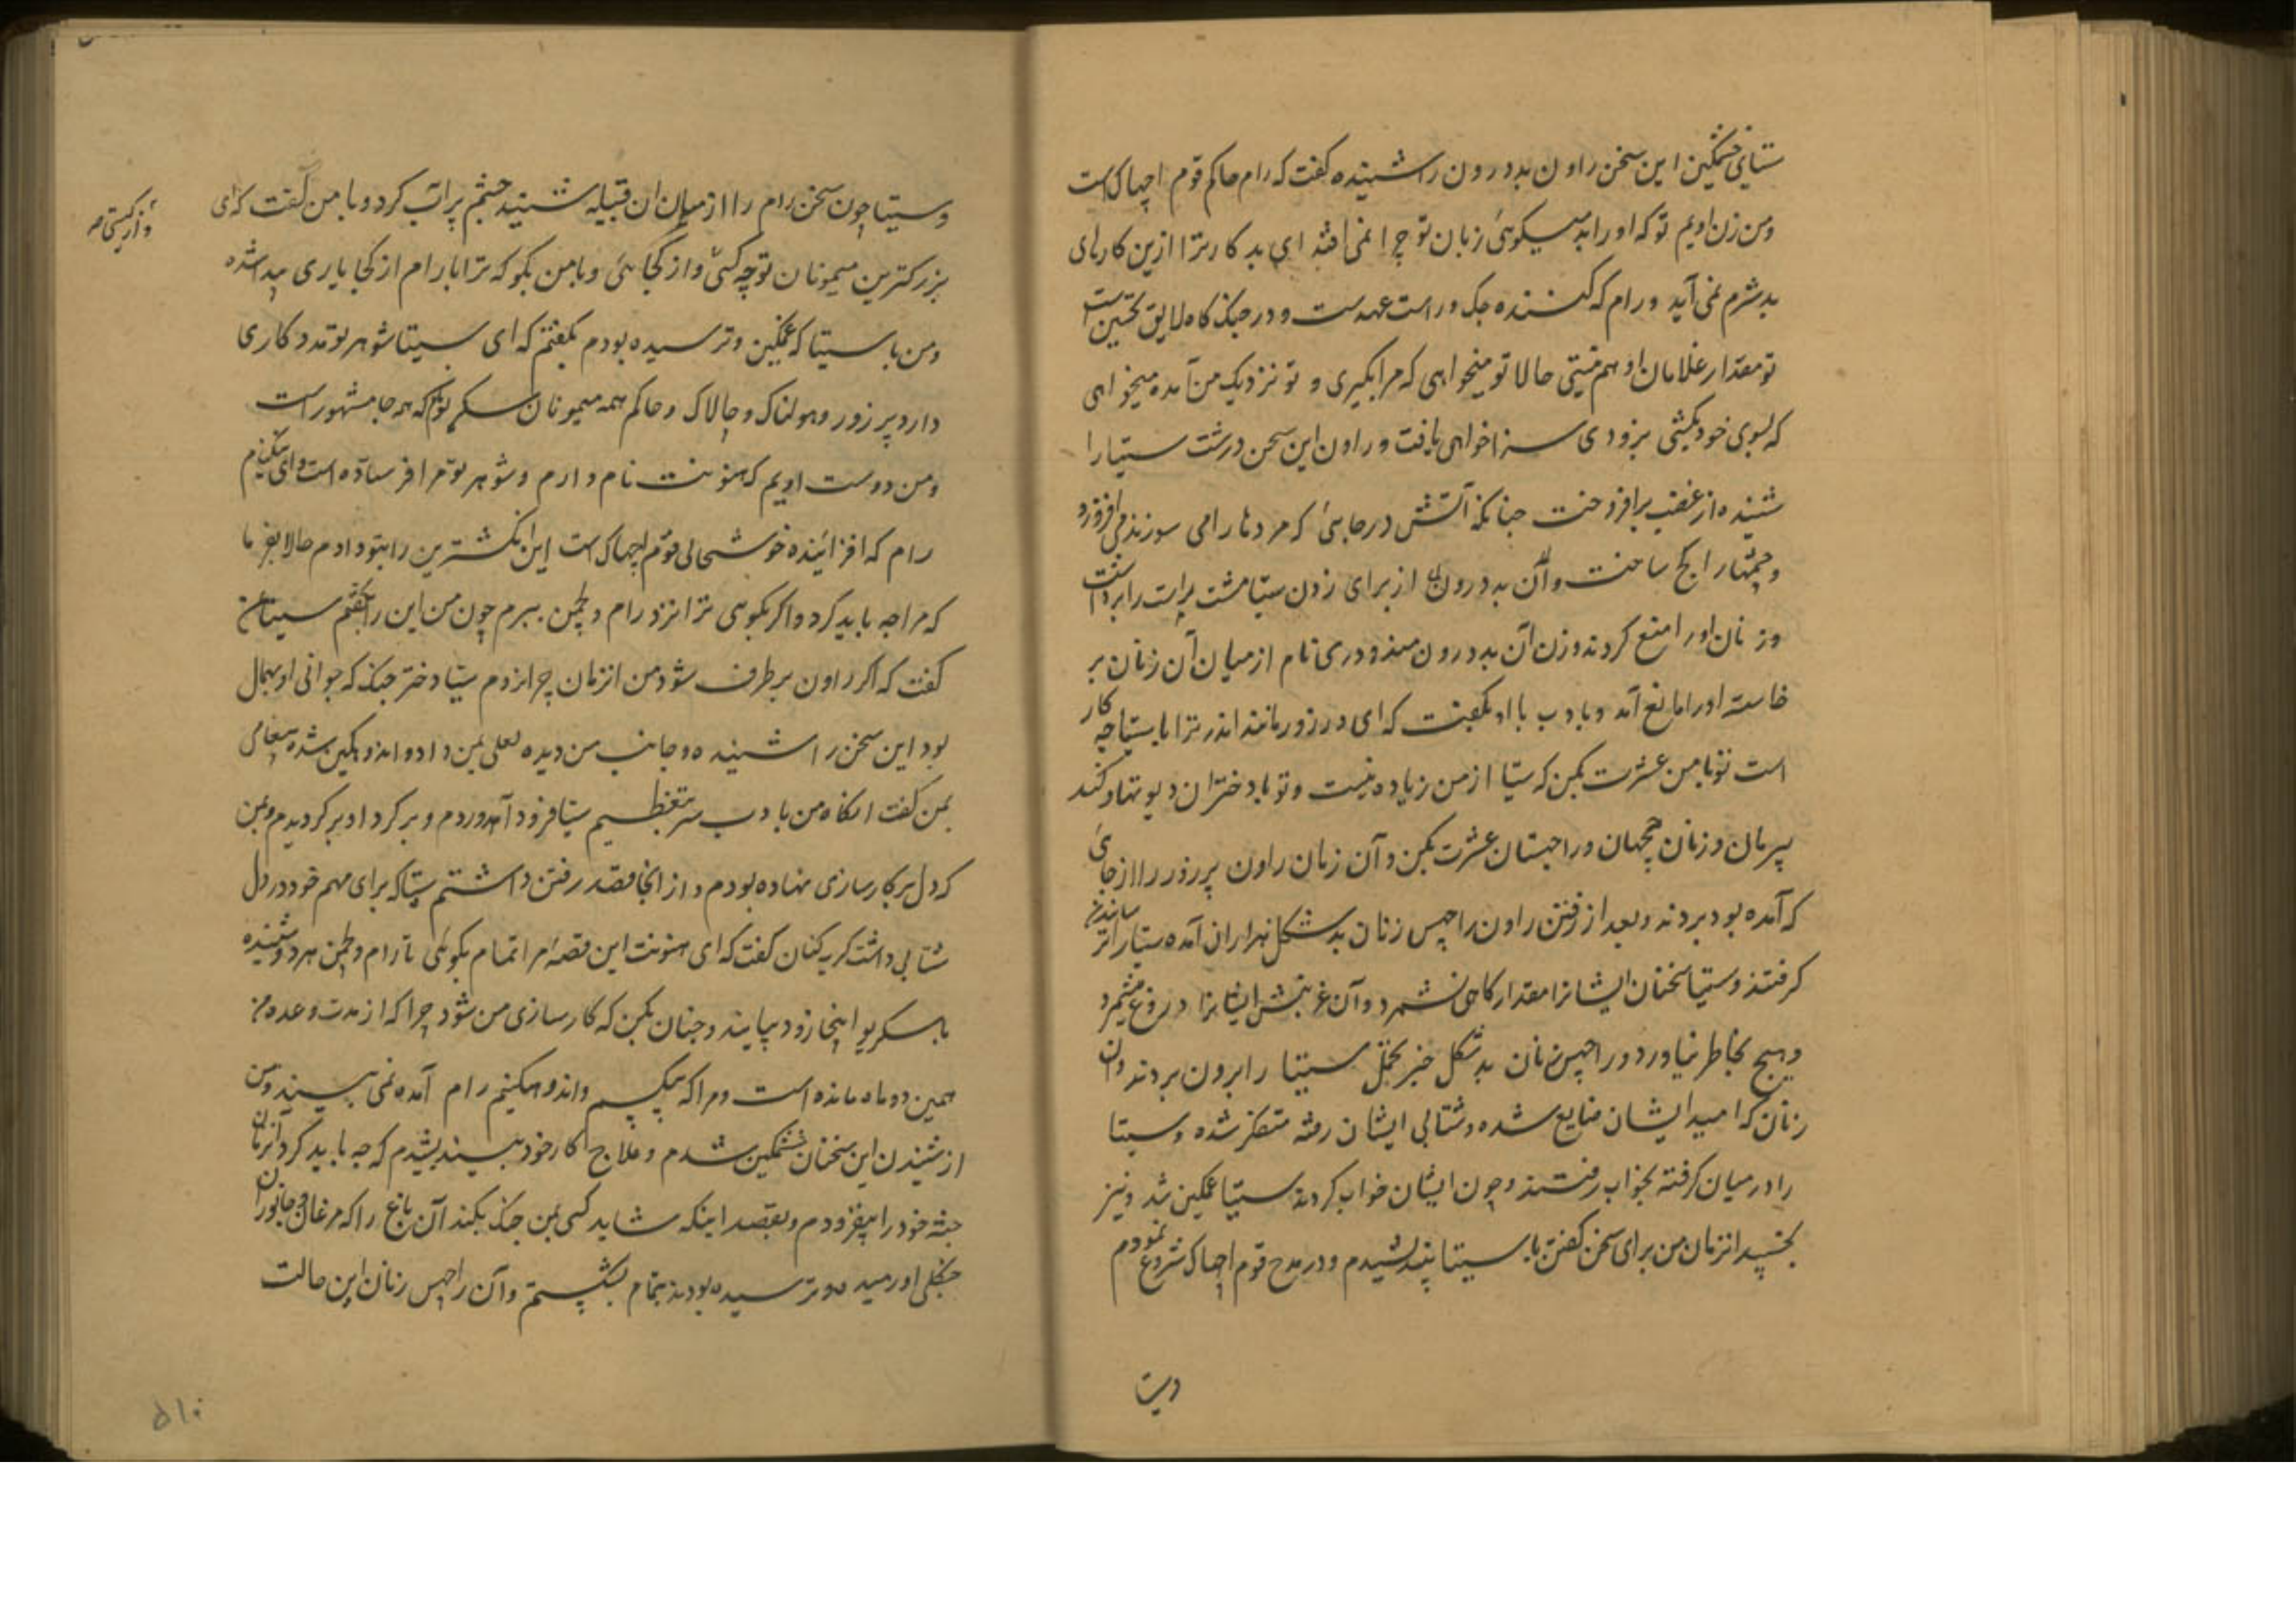 ستیای خشمگین این سخن راون بددرون را شنیده گفت که رام حاکم قوم اچهاک است
و من زن اویم تو که او را بد میکوئی زبان تو چرا نمی افتد ای بدکار ترا ازین کارهای
بد شرم نمی آید و رام که کننده جک و راست عهد ست و در جنگ کاه لایق تحسین ست
تو مقدار غلامان او هم نیستی حالا تو میخواهی که مرا بگیری و تو نزدیک من آمده میخواهی
که بسوی خود بکشی بزودی سزا خواهی یافت و راون این سخن درشت سیتا را
شنیده از غضب برافروخت چنانکه آتش در جایی که مردها را می سوزند می افروزد
و چشمها را کج ساخت و آن بددرون از برای زدن سیتا مشت راست را برداشت
و زنان او را منع کردند و زن آن بددرون مندودری نام از میان آن زنان بر
خاسته او را مانع آمد و بادب با او بگفت که ای در زور مانند اندر ترا با سیتا چه کار
است تو با من عشرت بکن که سیتا از من زیاده نیست و تو با دختران دیوتها و گند
پریان و زنان جچهان و راجستان عشرت بکن و آن زنان راون پر زور را از جای
که آمده بود بردند و بعد از رفتن راون راچپس زنان بدشکل هزاران آمده سیتا را ترسانیدن
گرفتند و سیتا سخنان ایشانرا مقدار کاهی نشمرد و آن غریدن ایشانرا دروغ میشمرد
و هیچ بخاطر نیاورد و راچپس زنان بدشکل خبر سیتا را برون بردند و آن
زنان که امید ایشان ضایع شده و شتابی ایشان رفته متفکر شده و سیتا
را در میان گرفته بخواب رفتند و چون ایشان خواب کردند سیتا غمگین شد و نیز
بخسپید انزمان من برای سخن گفتن با سیتا بیندیشیدم و در مدح قوم اچهاک شروع نمودم
وسیتا
وسیتا چون سخن رام را از میان آن قبیله شنید چشم پر آب کرد و با من گفت که ای
بزرکترین میمونان تو چه کسی و از کجائی و با من بکو که ترا با رام از کجا یاری پیدا شده
و من با سیتا که غمگین و ترسیده بودم بگفتم که ای سیتا شوهر تو مددکاری
دارد پر زور و هولناک و چالاک و حاکم همه میمونان سکریو نام که همه جا مشهور است
و من دوست اویم که هنونت نام دارم و شوهر تو مرا فرستاده است و ای نیکنام
رام که افزاینده خوشحالی قوم اچهاک است این انگشترین را بتو داد م حالا بفرما
که مرا چه باید کرد و اگر بکوئی ترا نزد رام و لچمن ببرم چون من این را گفتم سیتا بمن
گفت که اگر راون برطرف شود من انزمان چرا نروم سیتا دختر جنک که جوانی او بکمال
بود این سخن را شنیده و جانب من دیده لعلی بمن داد و اندوهگین شده پیغامی
بمن گفت انگاه من بادب سر بتعظیم سیتا فرود آوردم و برگرد او برگردیدم و بمن
که دل بر کارسازی نهاده بودم و از انجا قصد رفتن داشتم سیتا که برای مهم خود در دل
شتابی داشت گریه کنان گفت که ای هنونت این قصه مرا تمام بکوئی تا رام و لچمن هر دو شنیده
با سکریو اینجا زود بیایند و چنان بکن که کارسازی من شود چرا که از مدت وعده من
همین دو ماه مانده است و مرا که بیکسم و اندوهگینم رام آمده نمی بیند و من
از شنیدن این سخنان خشمگین شدم و علاج کار خود بیندیشیدم که چه باید کرد انزمان
جثه خود را بیفزودم و بقصد اینکه شاید کسی بمن جنگ بکند آن باغ را که مرغان و جانوران
جنگلی او رمیده و ترسیده بودند بتمام بشکستم و آن راچپس زنان این حالت
۵۱۰